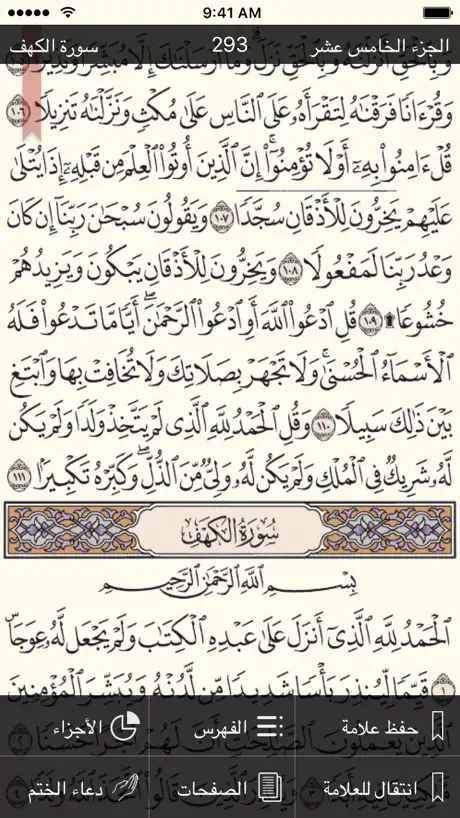 9:41 AM
الجزء الخامس عشر 293 سورة الكهف
وَبِالْحَقِّ أَنزَلْنَٰهُ وَبِالْحَقِّ نَزَلَ ۗ وَمَآ أَرْسَلْنَٰكَ إِلَّا مُبَشِّرًا وَنَذِيرًا ١٠٥
وَقُرْءَانًا فَرَقْنَٰهُ لِتَقْرَأَهُۥ عَلَى النَّاسِ عَلَىٰ مُكْثٍ وَنَزَّلْنَٰهُ تَنزِيلًا ١٠٦
قُلْ ءَامِنُوا۟ بِهِۦٓ أَوْ لَا تُؤْمِنُوٓا۟ ۚ إِنَّ الَّذِينَ أُوتُوا۟ الْعِلْمَ مِن قَبْلِهِۦٓ إِذَا يُتْلَىٰ
عَلَيْهِمْ يَخِرُّونَ لِلْأَذْقَانِ سُجَّدًا ١٠٧ وَيَقُولُونَ سُبْحَٰنَ رَبِّنَآ إِن كَانَ
وَعْدُ رَبِّنَا لَمَفْعُولًا ١٠٨ وَيَخِرُّونَ لِلْأَذْقَانِ يَبْكُونَ وَيَزِيدُهُمْ
خُشُوعًا ۩ ١٠٩ قُلِ ادْعُوا۟ اللَّهَ أَوِ ادْعُوا۟ الرَّحْمَٰنَ ۖ أَيًّا مَّا تَدْعُوا۟ فَلَهُ
الْأَسْمَآءُ الْحُسْنَىٰ ۚ وَلَا تَجْهَرْ بِصَلَاتِكَ وَلَا تُخَافِتْ بِهَا وَابْتَغِ
بَيْنَ ذَٰلِكَ سَبِيلًا ١١٠ وَقُلِ الْحَمْدُ لِلَّهِ الَّذِى لَمْ يَتَّخِذْ وَلَدًا وَلَمْ يَكُن
لَّهُۥ شَرِيكٌ فِى الْمُلْكِ وَلَمْ يَكُن لَّهُۥ وَلِىٌّ مِّنَ الذُّلِّ ۖ وَكَبِّرْهُ تَكْبِيرًۢا ١١١
سُورَةُ الكَهْفِ
بِسْمِ اللَّهِ الرَّحْمَٰنِ الرَّحِيمِ
الْحَمْدُ لِلَّهِ الَّذِىٓ أَنزَلَ عَلَىٰ عَبْدِهِ الْكِتَٰبَ وَلَمْ يَجْعَل لَّهُۥ عِوَجَا ۜ
١ قَيِّمًا لِّيُنذِرَ بَأْسًا شَدِيدًا مِّن لَّدُنْهُ وَيُبَشِّرَ الْمُؤْمِنِينَ
الَّذِينَ يَعْمَلُونَ الصَّٰلِحَٰتِ أَنَّ لَهُمْ أَجْرًا حَسَنًا ٢
حفظ علامة الفهرس الأجزاء
انتقال للعلامة الصفحات دعاء الختم